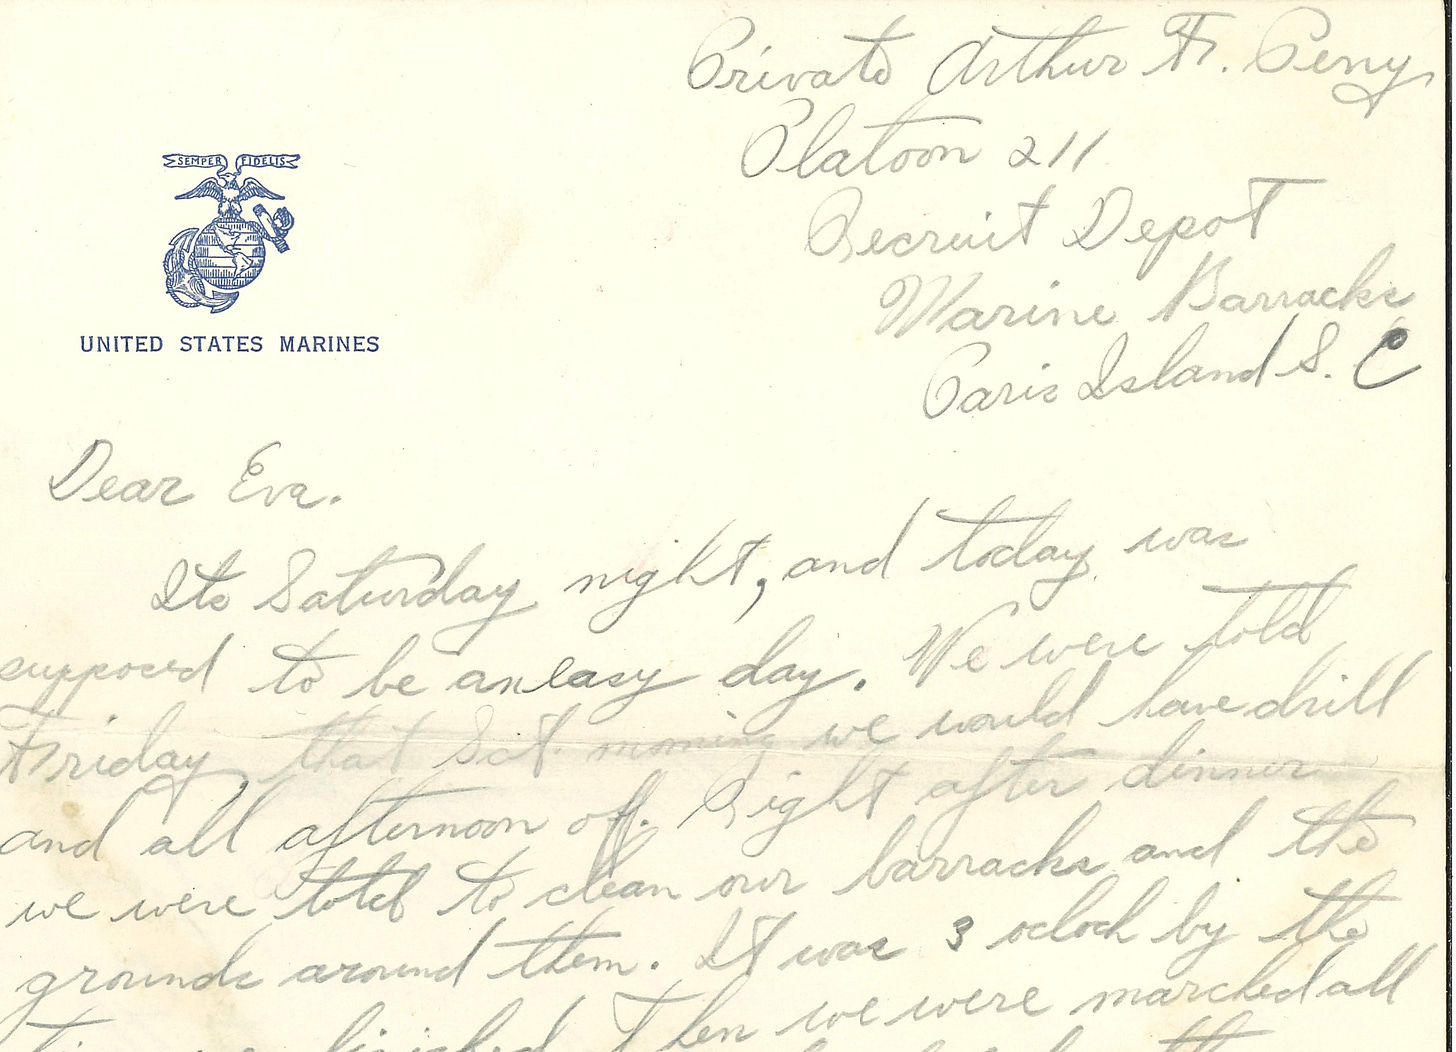 Private Arthur Fr. Peny
Platoon 211
Recruit Depot
Marine Barracks
Paris Island S. C
SEMPER FIDELIS
UNITED STATES MARINES
Dear Eva.
Its Saturday night, and today was
supposed to be an easy day. We were told
Friday, that Sat. morning we would have drill
and all afternoon off. Right after dinner
we were told to clean our barracks and the
grounds around them. It was 3 oclock by the
time we finished. Then we were marched all